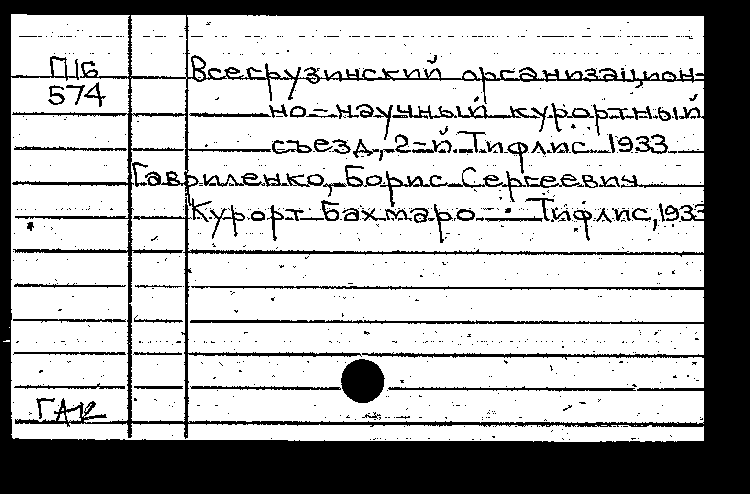 П16
574
Всегрузинский организацион-
но-научный курортный
съезд, 2-й. Тифлис 1933
Гавриленко, Борис Сергеевич
Курорт Бахмаро. - Тифлис, 1933